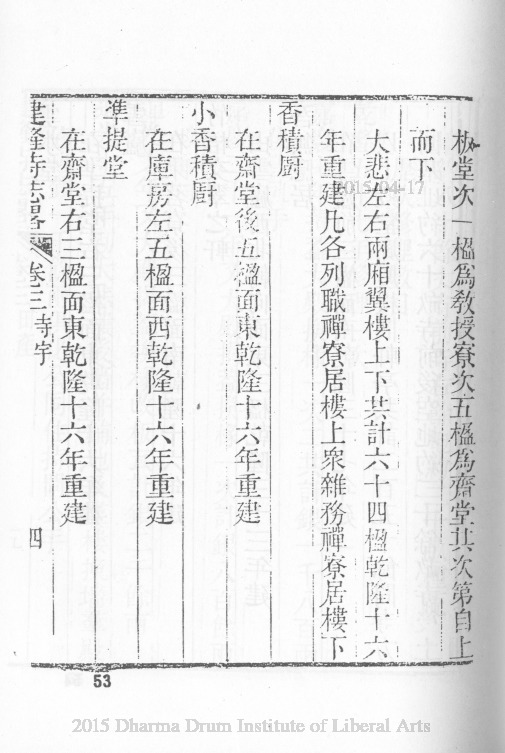 板堂次一楹為教授寮次五楹為齋堂其次第自上
而下
大悲左右兩廂翼樓上下共計六十四楹乾隆十六
年重建凡各列職禪寮居樓上眾雜務禪寮居樓下
香積厨
在齋堂後五楹面東乾隆十六年重建
小香積厨
在庫房左五楹面西乾隆十六年重建
準提堂
在齋堂右三楹面東乾隆十六年重建
建隆寺志畧 卷三 寺宇 四
2015-04-17
53
2015 Dharma Drum Institute of Liberal Arts